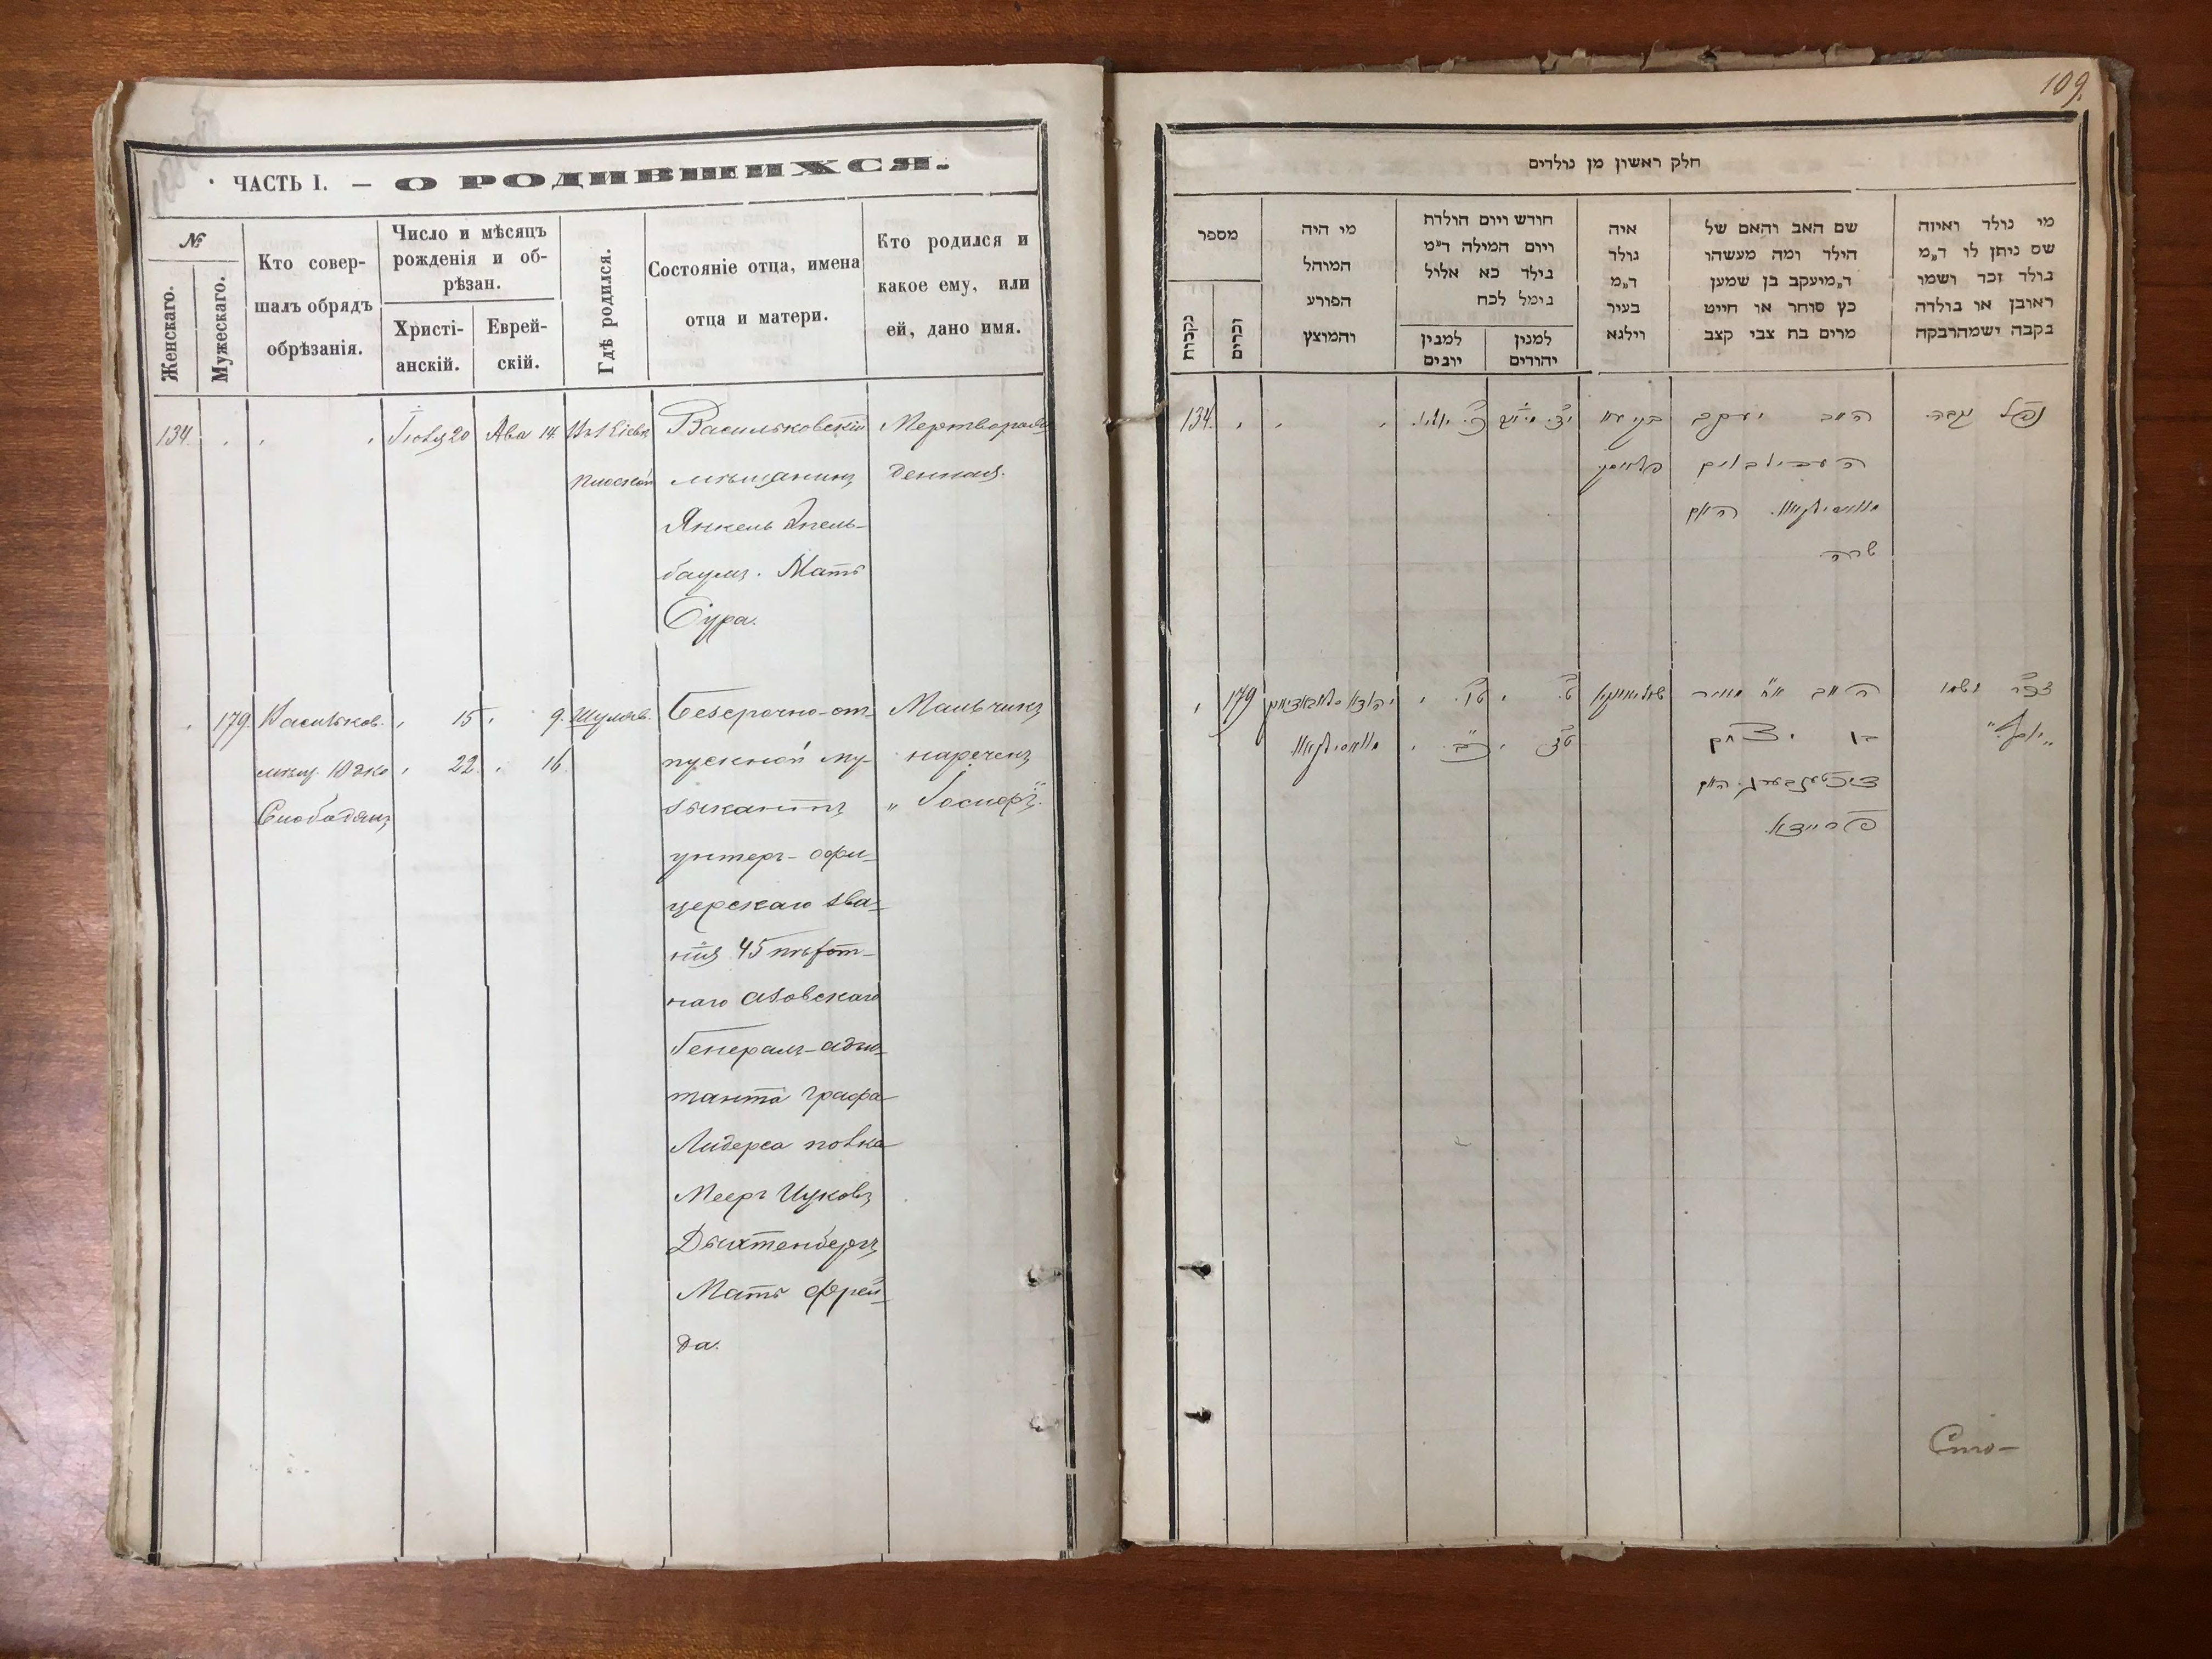 109.
ЧАСТЬ I. — О РОДИВШИХСЯ.
№
Женскаго.
Мужескаго.
Кто совер-
шалъ обрядъ
обрѣзанія.
Число и мѣсяцъ
рожденія и об-
рѣзан.
Христі-
анскій.
Еврей-
скій.
Гдѣ родился.
Состояніе отца, имена
отца и матери.
Кто родился и
какое ему, или
ей, дано имя.
134.
Ава 14
Васильковскій
мѣщанинъ
Янкель Эпель-
баумъ. Мать
Сура.
Мертворож-
денная.
179.
Васильков.
мѣщ. Юдко
Слободянъ
15
22
9.
16.
Шуляв.
Безсрочно-от-
пускной му-
зыкантъ
унтеръ-офи-
церскаго зва-
нія 45 пѣхот-
наго Азовскаго
Генералъ-адъю-
танта графа
Лидерса полка
Мееръ Ицковъ
Дыхтенбергъ
Мать Фрей-
да.
Мальчикъ
нареченъ
„Іосифъ“.
חלק ראשון מן נולדים
מספר
נקבות
זכרים
מי היה
המוהל
הפורע
והמוצץ
חודש ויום הולדת
ויום המילה ד״מ
נילד כא אלול
נימל לכח
למנין
יהודים
למנין
יונים
איה
נולד
ד״מ
בעיר
ווילנא
שם האב והאם של
הילד ומה מעשהו
ד״מ יעקב בן שמען
כץ סוחר או חייט
מרים בת צבי קצב
מי נולד ואיזה
שם ניתן לו ד״מ
נולד זכר ושמו
ראובן או נולדה
נקבה ישמה רבקה
134.
האב יעקב
האם
שרה
179
האב
מאיר
בן יצחק
האם
פריידא.
זכר ושמו
„יוסף“
Сто-